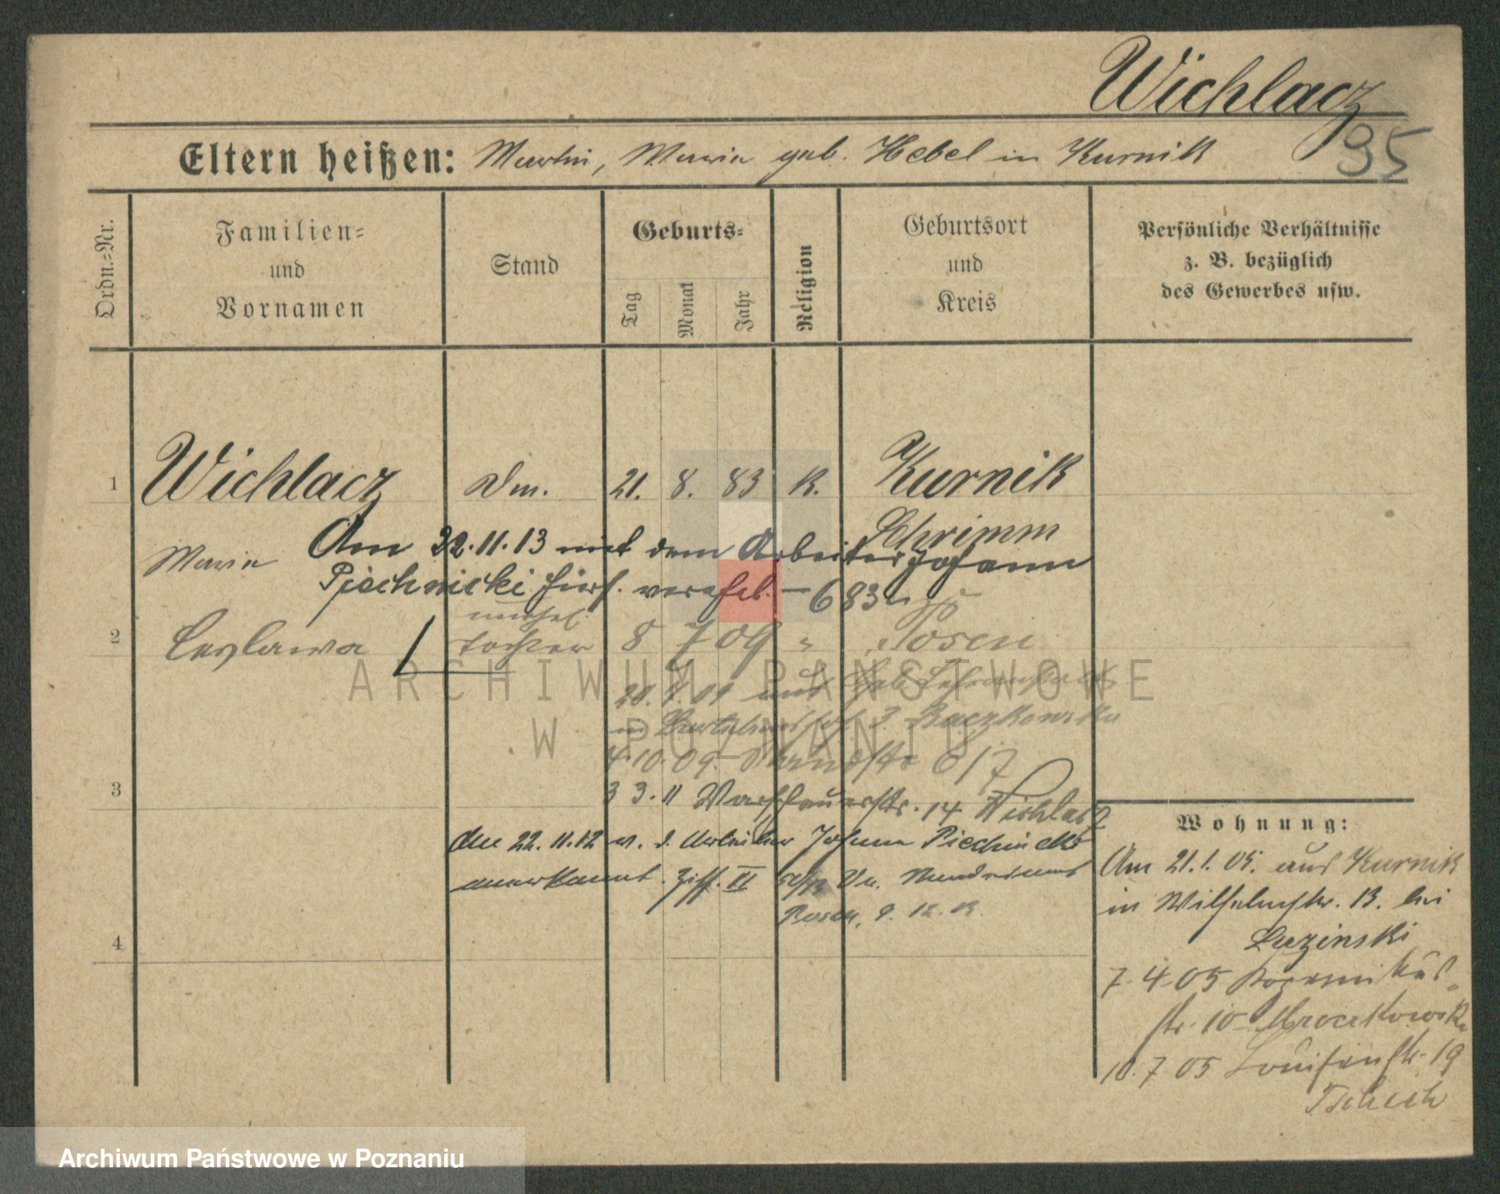 Wichlacz
95
Eltern heißen: Martin, Maria geb. Hebel in Kurnik
Ordn.-Nr.
Familien- und Vornamen
Stand
Geburts-
Tag
Monat
Jahr
Religion
Geburtsort und Kreis
Persönliche Verhältnisse
z. B. bezüglich
des Gewerbes usw.
1 Wichlacz Dm. 21. 8. 83 K. Kurnik
Schrimm
Maria Am 22.11.13 mit dem Arbeiter Johann
Piechnicki hier verehel. – 683
unehel
2 Ceslawa Tochter 8 7 09 " Posen
20.7.09 aus
Raczkowska
4.10.09. 6/7
3 3.11 Warschauerstr. 14 Wichlacz
3
den 22.11.12 v. d. Arbeiter Johann Piechnicki
anerkannt. Ziff. II
Posen, 9. 12. 13.
4
Wohnung:
Am 21.1.05. aus Kurnik
in Wilhelmstr. 13. bei
Luzinski
7.4.05 Kopernikus-
str. 10 Mroczkowska
10.7.05 Louisenstr. 19
ARCHIWUM PAŃSTWOWE
W POZNANIU
Archiwum Państwowe w Poznaniu